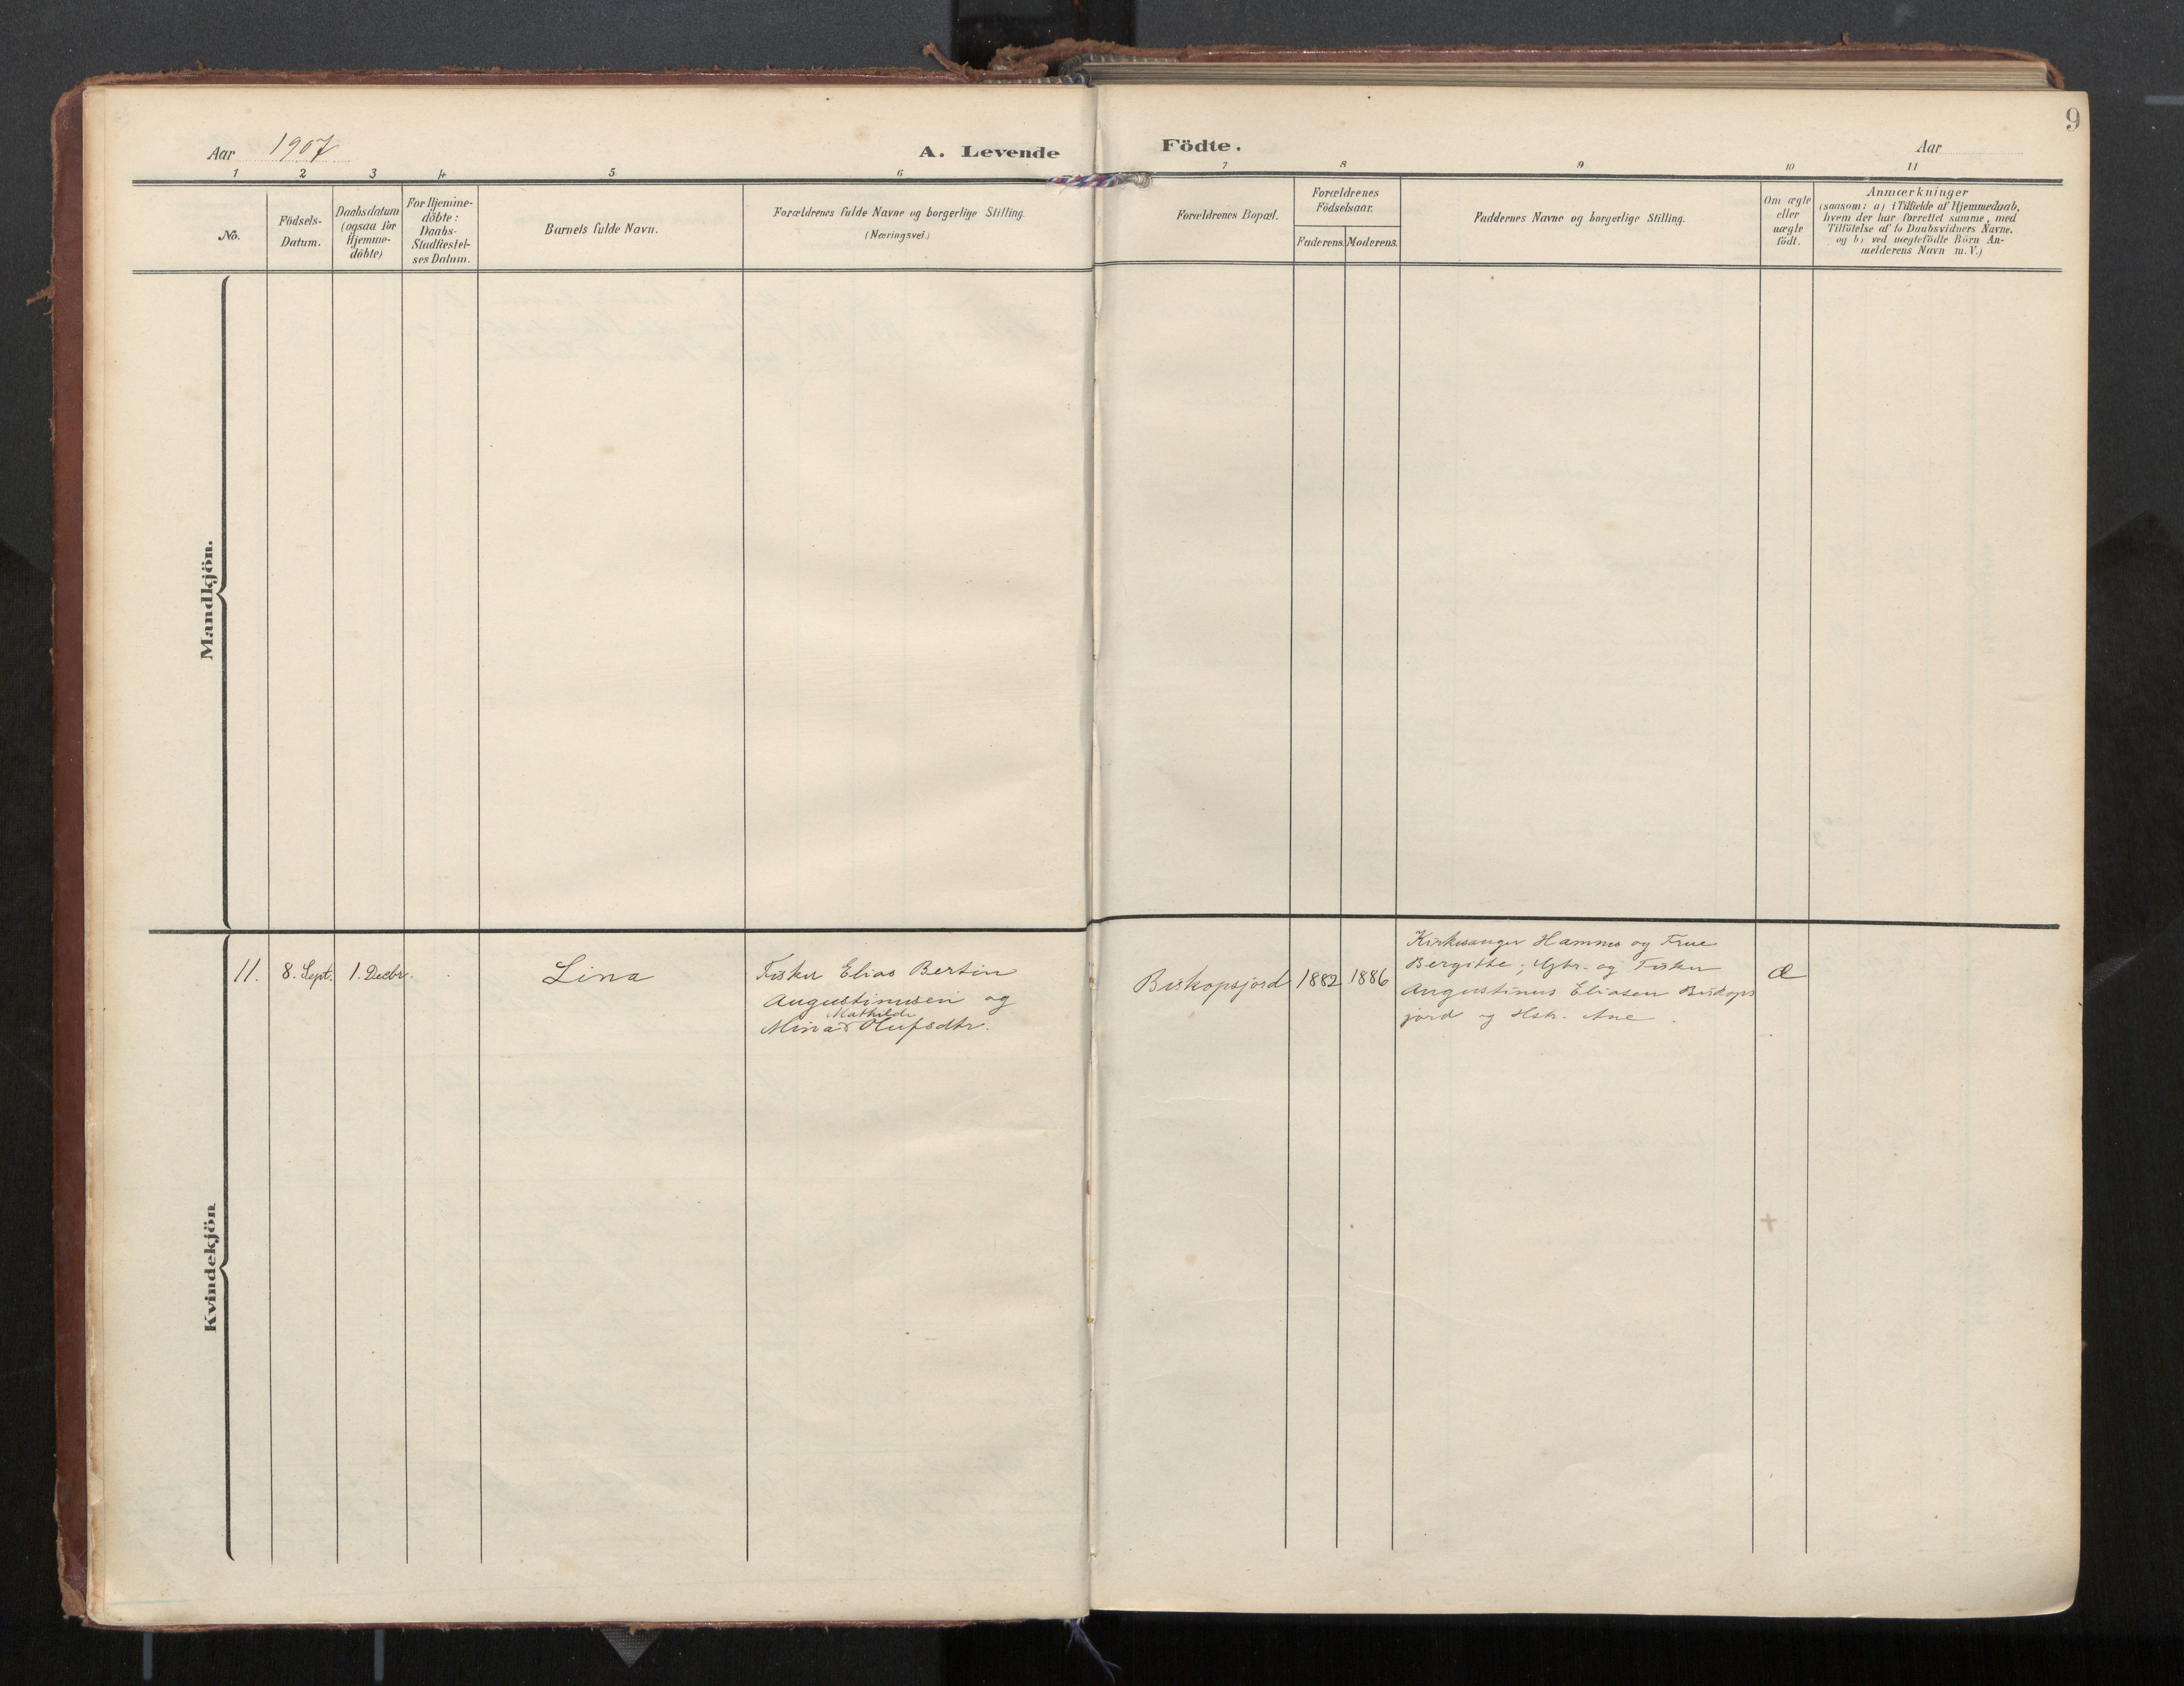 9
Aar 1907
A. Levende Födte.
Aar
1 2 3 4 5 6 7 8 9 10 11
No.
Födsels-
Datum.
Daabsdatum
(ogsaa for
Hjemme-
döbte)
For Hjemme-
döbte:
Daabs-
Stadfæstel-
ses Datum.
Barnets fulde Navn.
Forældrenes fulde Navne og borgerlige Stilling.
(Næringsvei.)
Forældrenes Bopæl.
Forældrenes
Födselsaar.
Faderens. Moderens.
Faddernes Navne og borgerlige Stilling.
Om ægte
eller
uægte
födt.
Anmærkninger
(saasom: a) i Tilfælde af Hjemmedaab,
hvem der har forrettet samme, med
Tilföielse af to Daabsvidners Navne.
og b) ved uægtefödte Börn An-
melderens Navn m. V.)
Mandkjön.
Kvindekjön
11. 8. Sept. 1. Decbr. Lina
Fisker Elias Bertin
Augustinusen og
Mathilde
Mina Olufsdtr.
Biskopsjord 1882 1886
Kirkesanger Hammo og Frue
Bergitte; Gbr. og Fisker
Augustinus Eliasen Biskops
jord og Hstr. Ane.
Æ